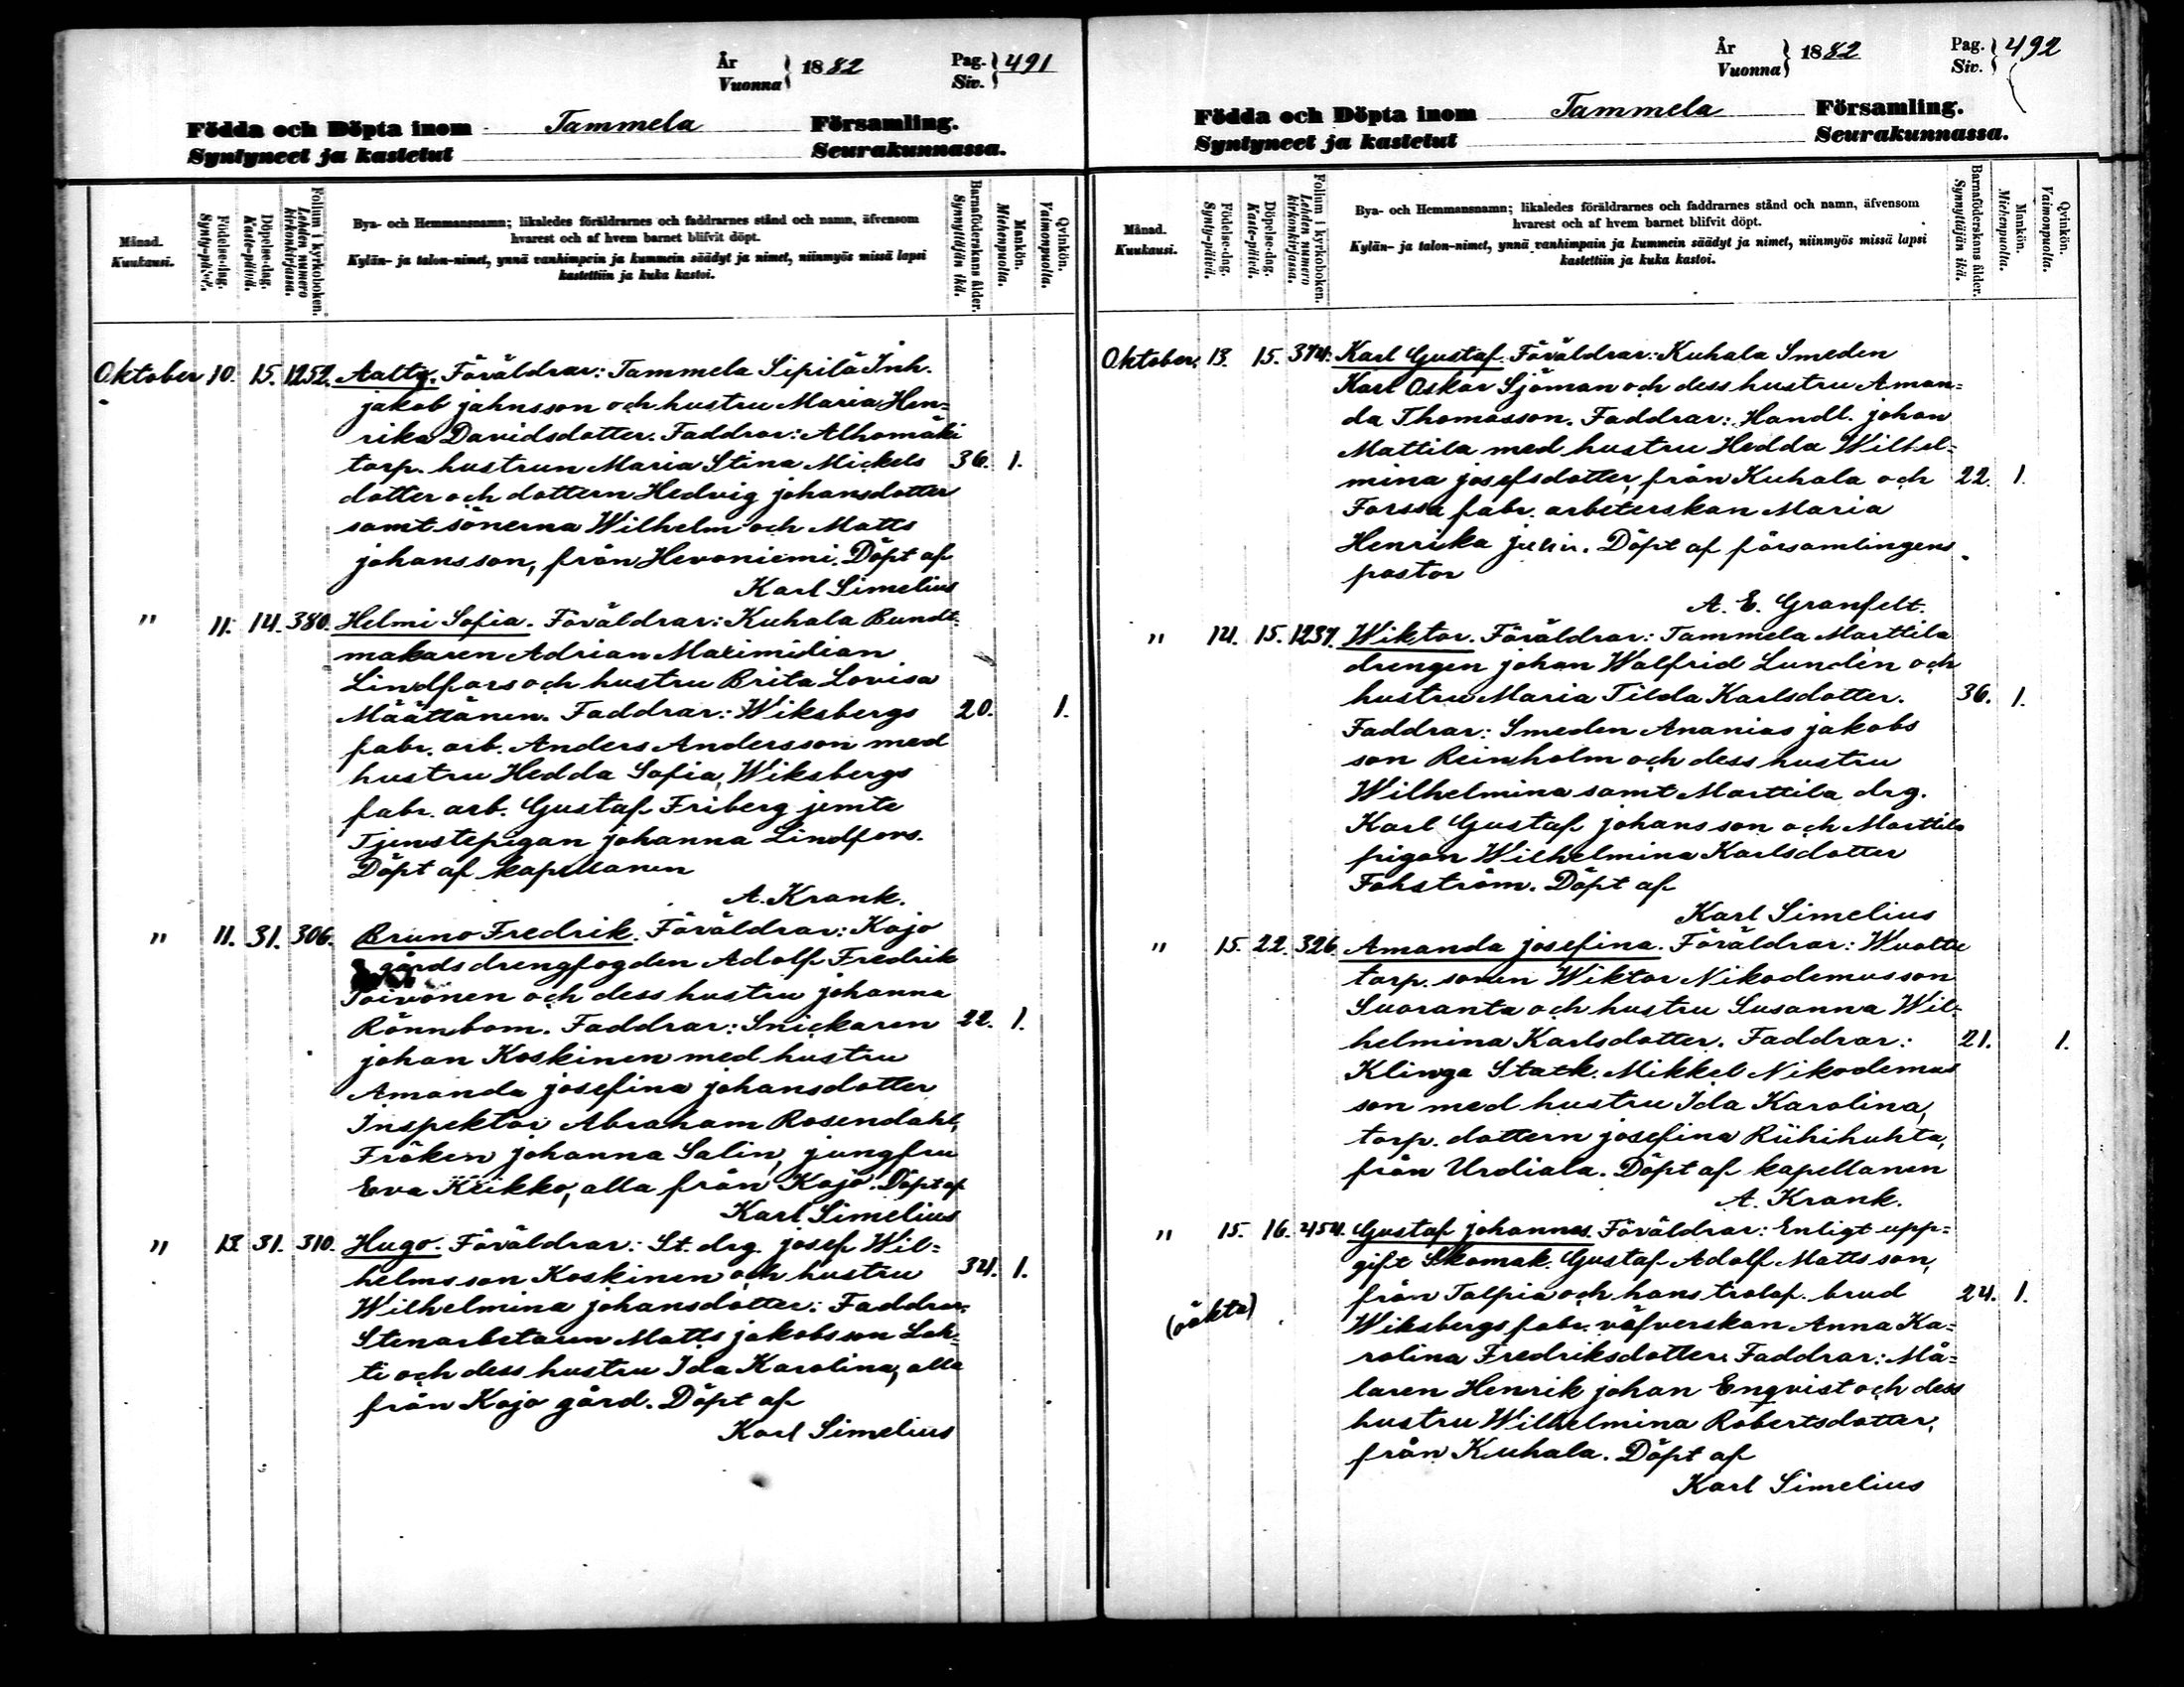 År
Vuonna } 1882
Pag.
Siv. } 491
Födda och Döpta inom Tammela Församling.
Syntyneet ja kastetut Seurakunnassa.
Månad.
Kuukausi.
Födelse-dag.
Synty-päivä.
Döpelse-dag.
Kaste-päivä.
Folium i kyrkoboken.
Lehden numero kirkonkirjassa.
Bya- och Hemmansnamn; likaledes föräldrarnes och faddrarnes stånd och namn, äfvensom
hvarest och af hvem barnet blifvit döpt.
Kylän- ja talon-nimet, ynnä vanhimpain ja kummein säädyt ja nimet, niinmyös missä lapsi
kastettiin ja kuka kastoi.
Barnaföderskans ålder.
Synnyttäjän ikä.
Mankön.
Miehenpuolta.
Qvinkön.
Vaimonpuolta.
Oktober 10. 15. 1252. Aalto. Föräldrar: Tammela Sipilä Inh.
jakob jahnsson och hustru Maria Hen=
rika Davidsdotter. Faddrar: Alhomäki
torp. hustrun Maria Stina Mickels 36. 1.
dotter och dottern Hedvig johansdotter
samt sönerna Wilhelm och Matts
johansson, från Hevoniemi. Döpt af
Karl Simelius
" 11. 14. 380. Helmi Sofia. Föräldrar: Kuhala Bundt-
makaren Adrian Maximilian
Lindfors och hustru Brita Lovisa
Määttänen. Faddrar: Wiksbergs 20. 1.
fabr. arb. Anders Andersson med
hustru Hedda Sofia, Wiksbergs
fabr. arb. Gustaf Friberg jemte
Tjenstepigan johanna Lindfors.
Döpt af kapellanen
A. Krank.
" 11. 31. 306. Bruno Fredrik. Föräldrar: Kojo
gårds drengfogden Adolf Fredrik
Toivonen och dess hustru johanna
Rönnbom. Faddrar: Snickaren 22. 1.
johan Koskinen med hustru
Amanda josefina johansdotter
Inspektor Abraham Rosendahl,
Fröken johanna Salin, jungfru
Eva Keikko, alla från Kojo. Döpt af
Karl Simelius
" 13. 31. 310. Hugo. Föräldrar: St. drg. josef Wil=
helmsson Koskinen och hustru 34. 1.
Wilhelmina johansdotter: Faddrar:
Stenarbetaren Matts jakobsson Lah-
ti och dess hustru Ida Karolina, alla
från Kojo gård. Döpt af
Karl Simelius
År
Vuonna } 1882
Pag.
Siv. } 492
Födda och Döpta inom Tammela Församling.
Syntyneet ja kastetut Seurakunnassa.
Månad.
Kuukausi.
Födelse-dag.
Synty-päivä.
Döpelse-dag.
Kaste-päivä.
Folium i kyrkoboken.
Lehden numero kirkonkirjassa.
Bya- och Hemmansnamn; likaledes föräldrarnes och faddrarnes stånd och namn, äfvensom
hvarest och af hvem barnet blifvit döpt.
Kylän- ja talon-nimet, ynnä vanhimpain ja kummein säädyt ja nimet, niinmyös missä lapsi
kastettiin ja kuka kastoi.
Barnaföderskans ålder.
Synnyttäjän ikä.
Mankön.
Miehenpuolta.
Qvinkön.
Vaimonpuolta.
Oktober. 13. 15. 374. Karl Gustaf. Föräldrar: Kuhala Smeden
Karl Oskar Sjöman och dess hustru Aman=
da Thomasson. Faddrar: Handl. johan
Mattila med hustru Hedda Wilhel=
mina josefsdotter, från Kuhala och 22. 1.
Forssa fabr. arbeterskan Maria
Henrika Döpt af församlingens
pastor
A. E. Granfelt.
" 14. 15. 1237. Wiktor. Föräldrar: Tammela Marttila
drengen johan Walfrid Lundén och
hustru Maria Tilda Karlsdotter. 36. 1.
Faddrar: Smeden Ananias jakobs
son Reinholm och dess hustru
Wilhelmina samt Marttila drg.
Karl Gustaf johansson och Marttila
pigan Wilhelmina Karlsdotter
Fohström. Döpt af
Karl Simelius
" 15. 22. 326. Amanda josefina. Föräldrar: Wuolte
torp. sonen Wiktor Nikodemusson
Suoranta och hustru Susanna Wil-
helmina Karlsdotter. Faddrar: 21. 1.
Klinga Statk. Mikkel Nikodemus
son med hustru Ida Karolina,
torp. dottern josefina Riihihuhta,
från Urdiala. Döpt af kapellanen
A. Krank.
" 15. 16. 454. Gustaf johannes. Föräldrar: Enligt upp=
gift Skomak. Gustaf Adolf Mattsson,
från Talpia och hans trolof. brud 24. 1.
(oäkta) Wiksbergs fabr. väfverskan Anna Ka=
rolina Fredriksdotter. Faddrar: Må=
laren Henrik johan Enqvist och dess
hustru Wilhelmina Robertsdotter,
från Kuhala. Döpt af
Karl Simelius